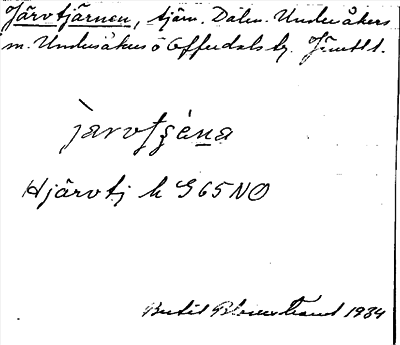 Järvtjärnen, tjärn. Dalm. Undersåkers
m. Undersåkers o Offerdals tg. Jämtl l.
järvtȷ̀ȩ́na
Hjärvtj k G65NO
Bertil Blomstrand 1934